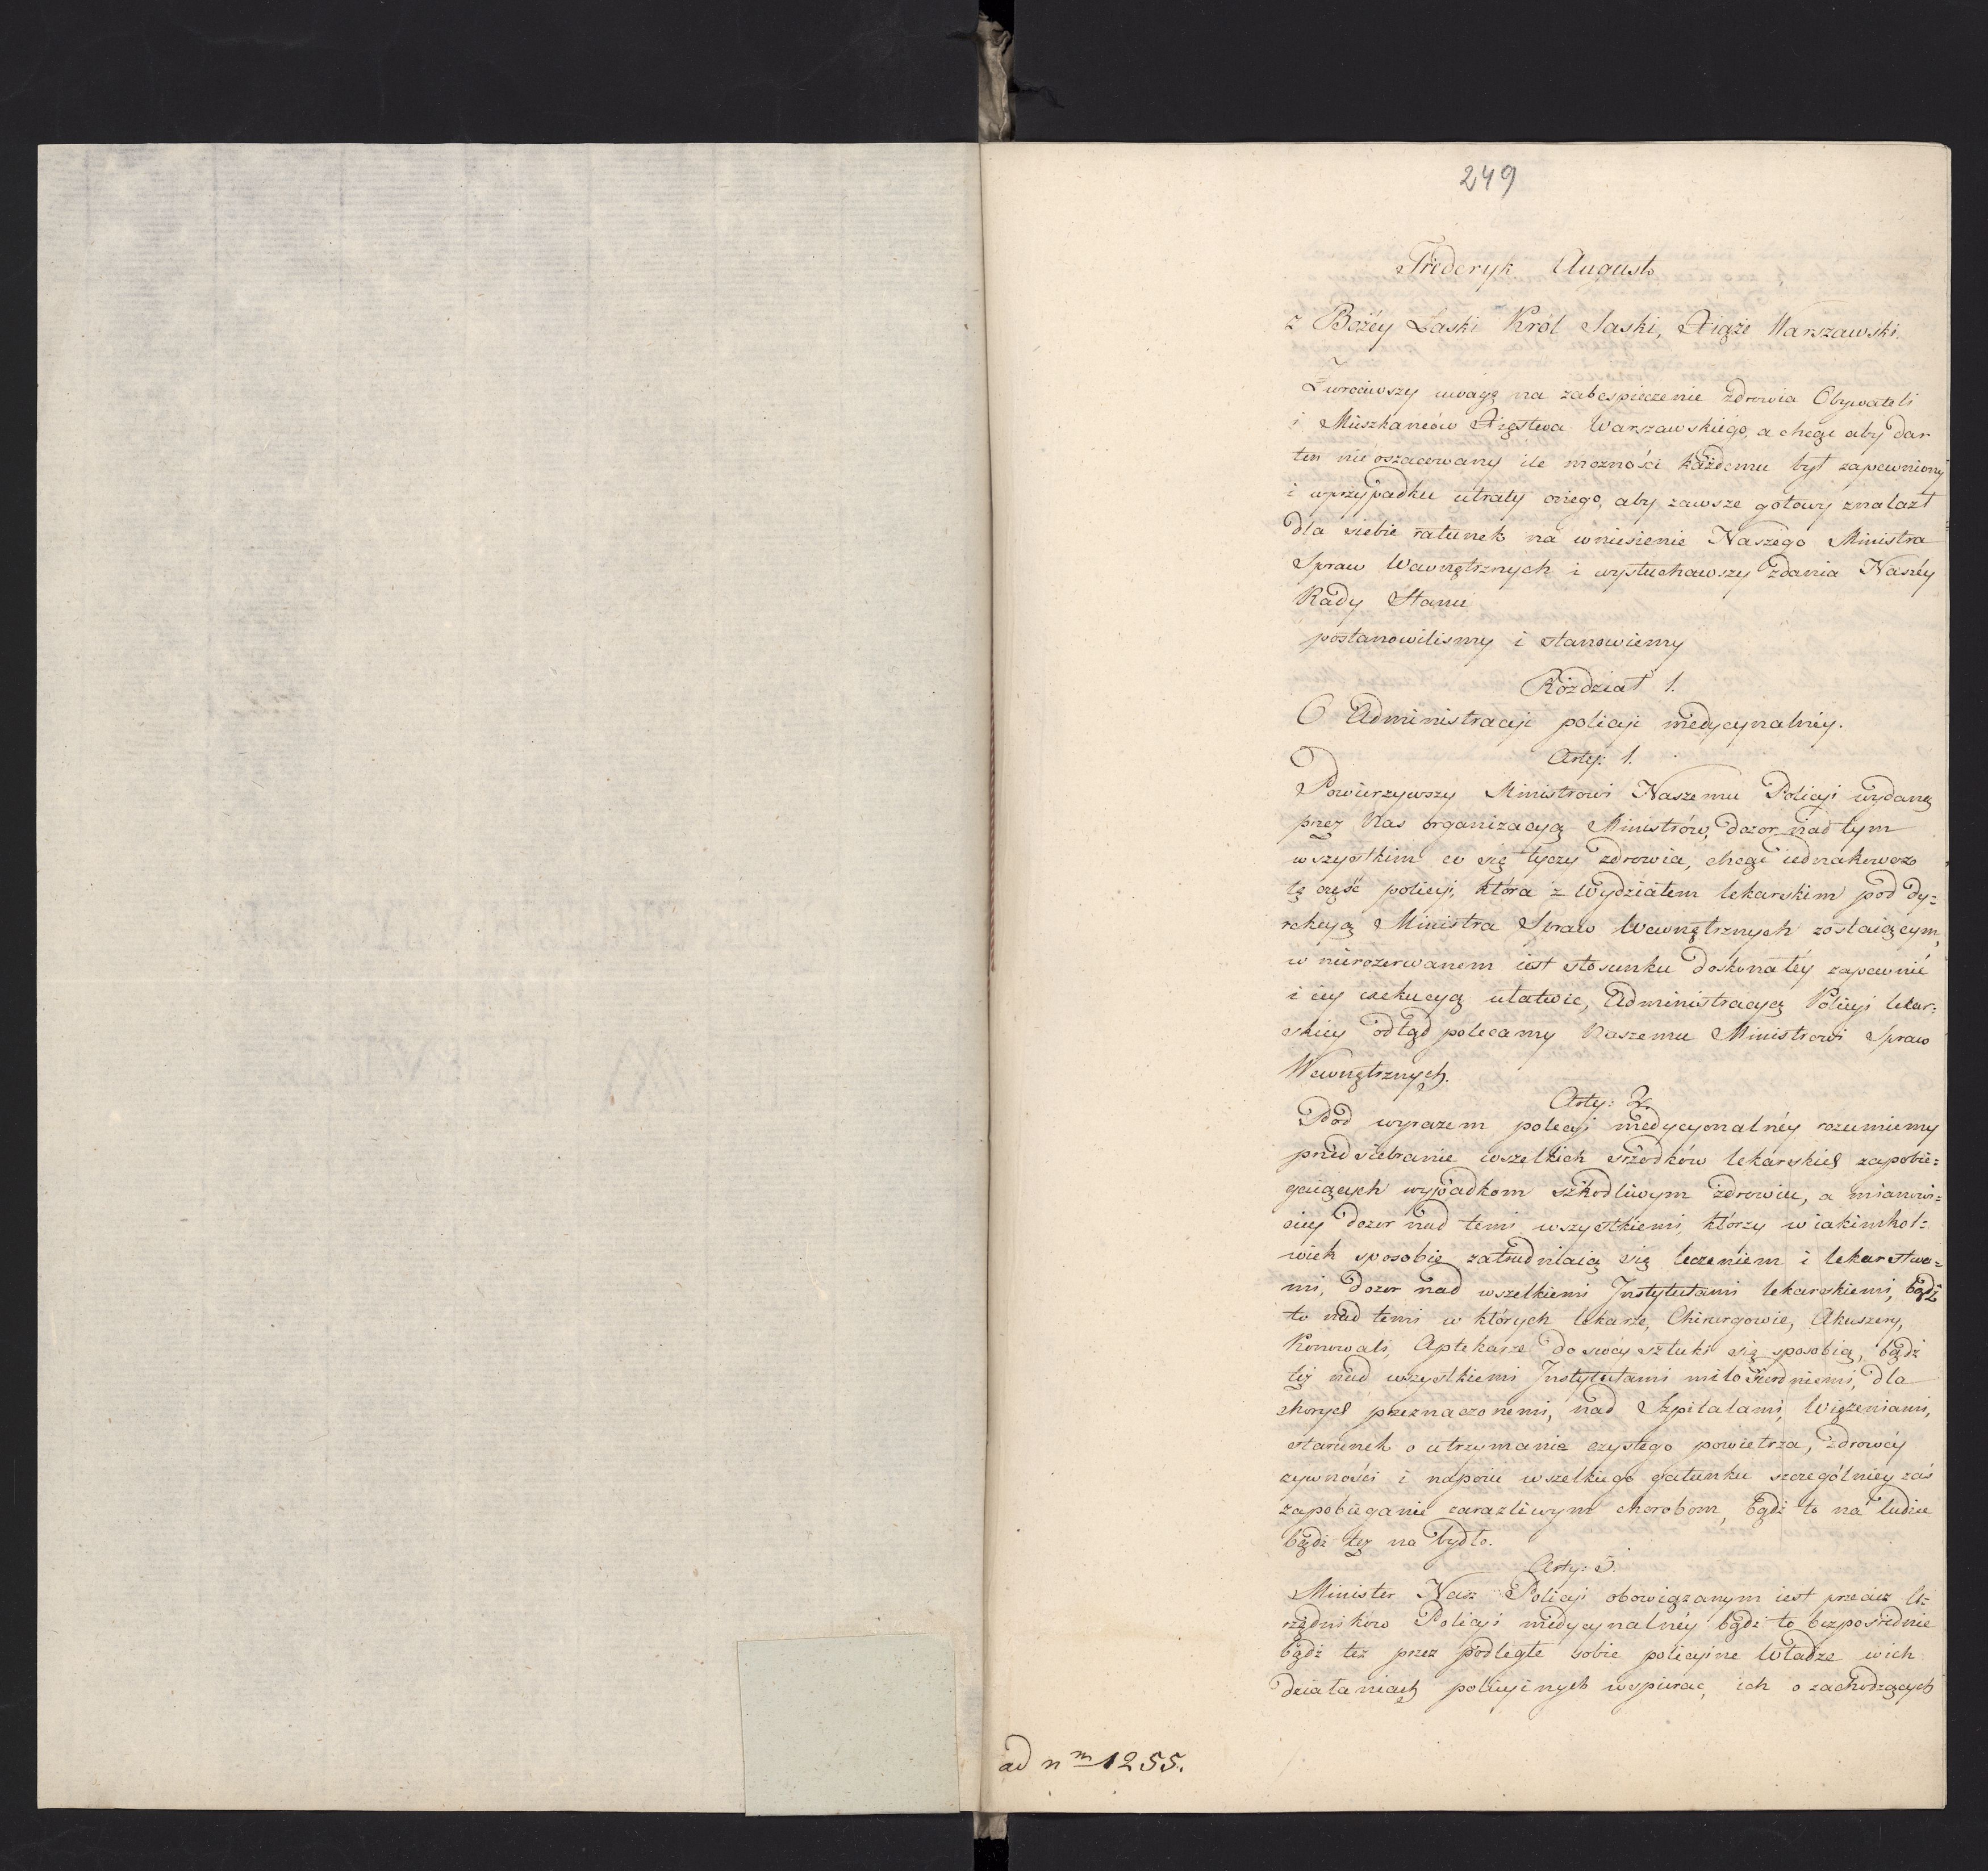 249
Fréderyk August
z Bożéy Łaski Król Saski, Xiąże Warszawski.
Zwrociwszy uwagę na zabespieczenie zdrowia Obywateli
i Mieszkańców Xięstwa Warszawskiégo, a chcąc aby dar
ten nieoszacowany ile możności każdemu był zapewniony
i wprzypadku utraty onego, aby zawsze gotowy znalazł
dla siebie ratunek na wniesienie Naszego Ministra
Spraw Wewnętrznych i wysłuchawszy zdania Naszéy
Rady Stanu
postanowiliśmy i stanowiemy
Rozdział 1.
O Administracji policji medycynalnéy.
Arty: 1.
Powierzywszy Ministrowi Naszemu Policyi wydaną
przez Nas organizacyą Ministrów, dozor nad tym
wszystkim co się tyczy zdrowia, chcąc iednakowoż
tę część policyi, która z Wydziałem lekarskim pod dy=
rekcyą Ministra Spraw Wewnętrznych zostaiącym,
w nierozerwanem iest stosunku doskonaléy zapewnić
i iey exekucyą ułatwić, Administracyą Policyi lekar=
skiey odtąd polecamy Naszemu Ministrowi Spraw
Wewnętrznych.
Arty: 2.
Pod wyrazem policyi medycynalnéy rozumiemy
przedsiebranie wszelkich srzodków lekarskich zapobie=
gaiących wypadkom szkodliwym zdrowiu, a mianowi=
ciey dozor nad temi wszystkiemi, którzy w iakimkol=
wiek sposobie zatrudniaią się leczeniem i lekarstwa=
mi, dozor nad wszelkiemi Instytutami lekarskiemi, bądź
to nad temi w których lekarze, Chirurgowie, Akuszery,
Konowali, Aptekarze do swéy sztuki się sposobią, bądź
téż nad wszystkiemi Instytutami miłosierdniemi, dla
chorych przeznaczonemi, nad Szpitalami, Więzeniami,
starunek o utrzymanie czystego powietrza, zdrowéy
zywności i napoiu wszelkiego gatunku szczególniey zaś
zapobieganie zarazliwym chorobom, bądź to na ludzie
bądź też na bydło.
Arty: 3.
Minister Nasz Policyi obowiązanym iest przeciez U=
rzędników Policyi medycynalnéy bądź to bezpośrednie
bądź też przez podległe sobie policyine Władze wich
działaniach policyinych wspierać, ich o zachodzących
ad nm 1255.